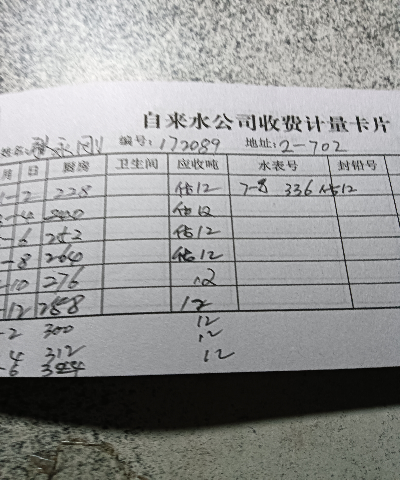 自来水公司收费计量卡片
编号: 172089 地址: 2-702
月 日 厨房 卫生间 应收吨 水表号 封铅号
-2 228 估12 7-8 336 估12
-4 估12
-6 252 估12
-8 264 估12
-10 276 12
-12 288 12
-2 300 12
-4 312 12
-6 324 12